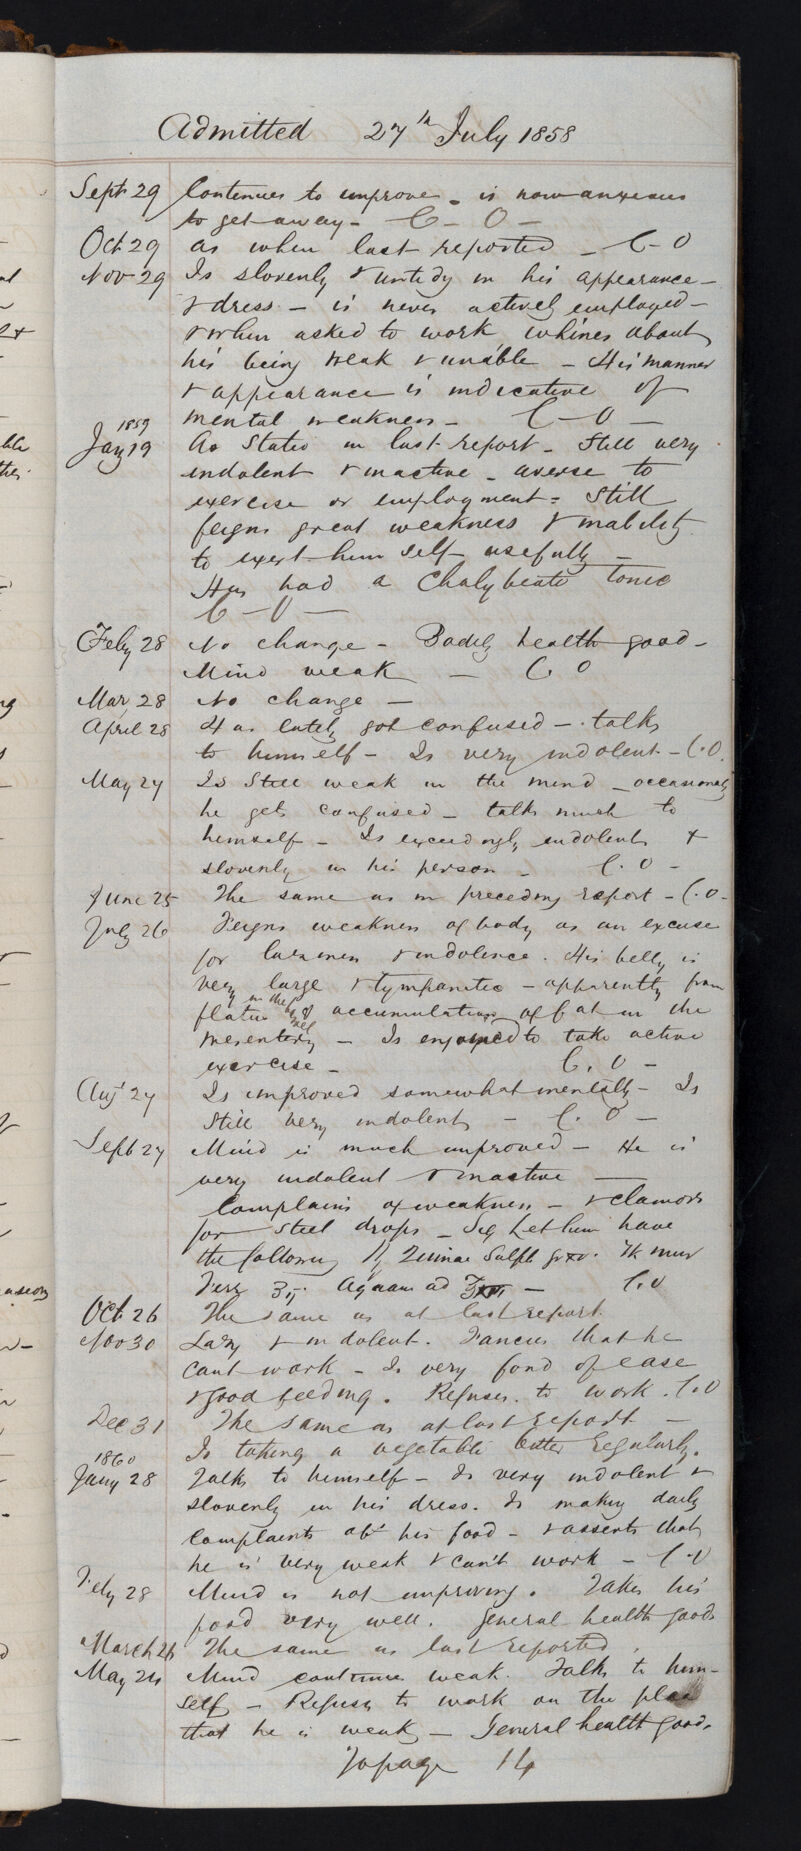 Admitted 27th July 1858
Sept 29 Continues to improve - is now anxious
to get away - C - O -
Oct 29 as when last reported - C - O
Nov 29 Is slovenly & untidy in his appearance -
& dress - is never actively employed -
& when asked to work whines about
his being weak & unable - His manner
& appearance is indicative of
mental weakness - C - O -
1859
Jany 19 As Stated in last report - Still very
indolent & inactive - averse to
exercise or employment - Still
feigns great weakness & inability
to exert himself usefully -
Has had a Chalybeate Tonic
C - O -
Feby 28 No change - Bodily health good -
Mind weak - C. O
Mar 28 No change -
April 28 Has lately got confused - talks
to himself - Is very indolent - C.O.
May 27 Is Still weak in the mind - occasionally
he gets confused - talks much to
himself - Is exceedingly indolent &
slovenly in his person - C. O -
June 25 The same as in preceding report - C.O -
July 26 Feigns weakness of body as an excuse
for laziness & indolence. His belly is
very large & tympanitic - apparently from
flatus in the bowel & accumulation of fat in the
mesentery - Is enjoined to take active
exercise - C. O -
Augt 27 Is improved somewhat mentally - Is
Still very indolent - C. O -
Sept 27 Mind is much improved - He is
very indolent & inactive -
Complains of weakness - & clamors
for Steel drops - Let him have
the following ℞ Quinae Sulph gr xv. Tr. Mur
Ferr ʒij Aquam ad - C.O
Oct 26 The same as at last report.
Nov 30 Lazy & indolent. Fancies that he
cant work - Is very fond of ease
& good feeding. Refuses to work. C.O
Dec 31 The same as at last report -
Is taking a vegetable bitter regularly.
1860
Jany 28 Talks to himself - Is very indolent &
slovenly in his dress. Is making daily
complaints abt his food - & asserts that
he is very weak & can't work - C.O
Feby 28 Mind is not improving. Takes his
food very well. General health good
March 26 The same as last reported.
May 24 Mind continues weak. Talks to him-
self - Refuses to work on the plea
that he is weak - General health good.
To page 14